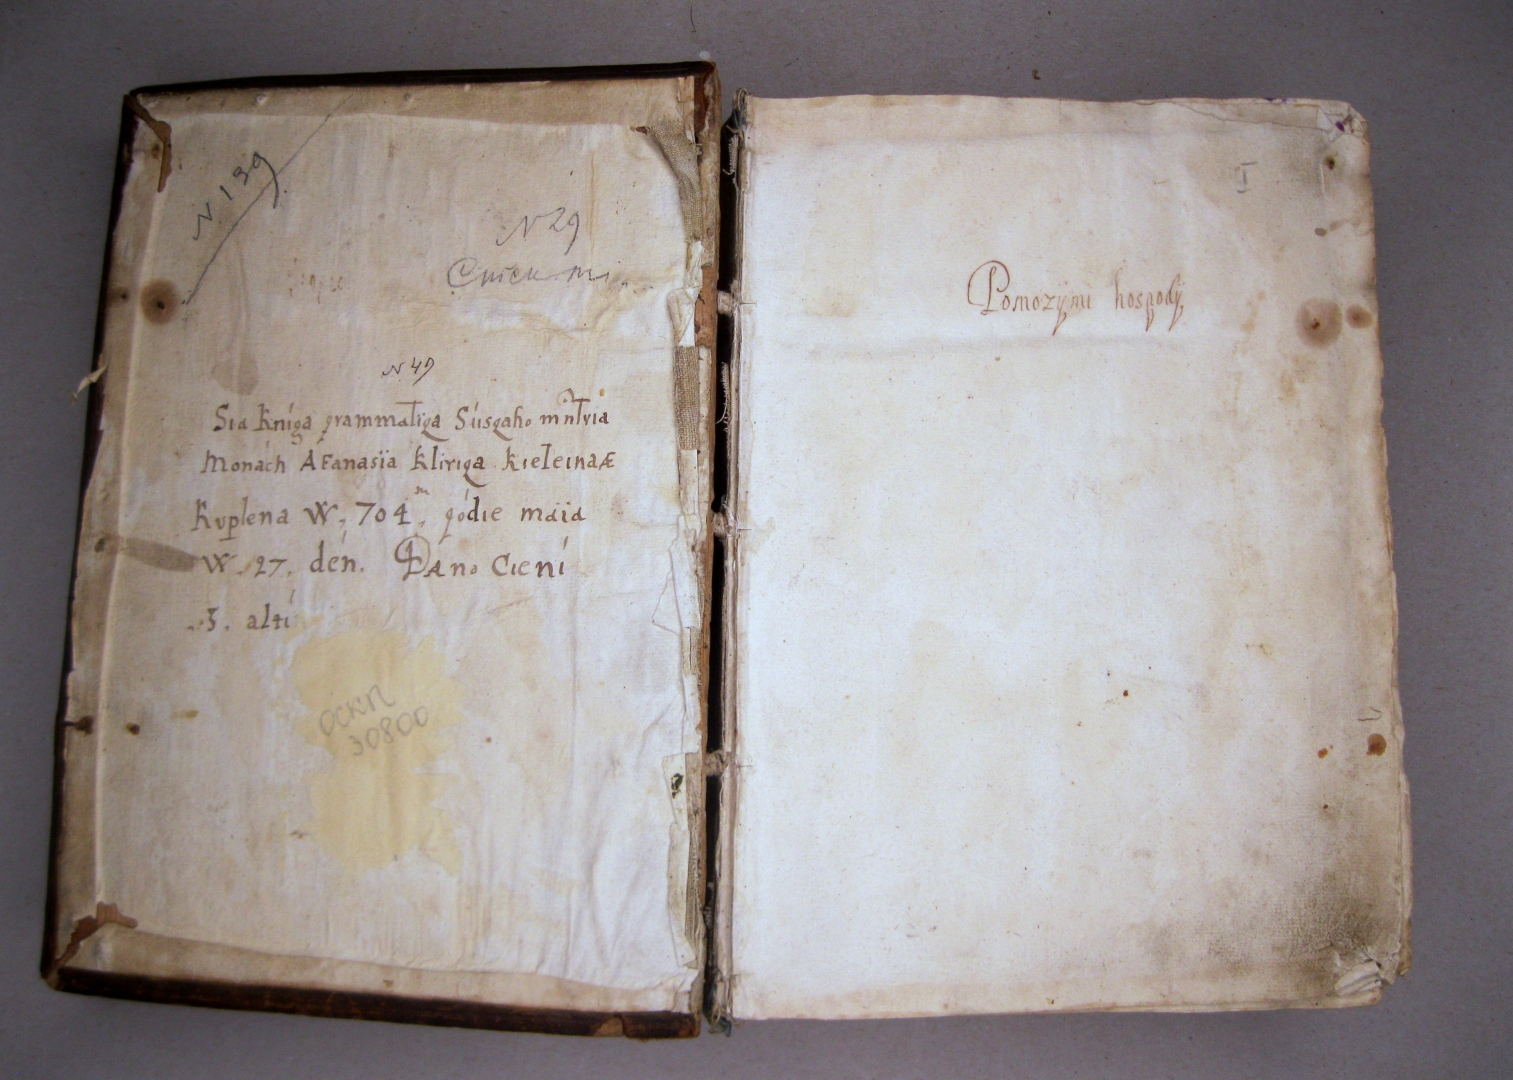 N 139
N 29
Списки
N 49
Sia Kníga grammatiqa Súsqaho mñtria
Monách Afanasiia kliriqa kieleinaæ
Kuplena W. 704.m gódie máïa
W. 27. dén. Dano Cieni
.3. alti
ОСКП
30800
I
Pomozymi hospody